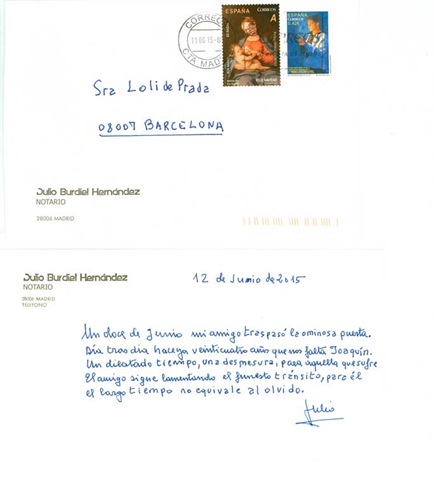 CORREOS
CTA MADRID
ESPAÑA
CORREOS
A
ESPAÑA
Sra Loli de Prada
08007 BARCELONA
Julio Burdiel Hernández
NOTARIO
28006 MADRID
Julio Burdiel Hernández
NOTARIO
28006 MADRID
TELEFONO
12 de Junio de 2015
Un doce de Junio mi amigo traspasó la ominosa puerta.
Día tras día hace ya veinticuatro años que nos falta Joaquín.
Un dilatado tiempo, una desmesura, para aquella que sufre
El amigo sigue lamentando el funesto tránsito, para él
el largo tiempo no equivale al olvido.
Julio